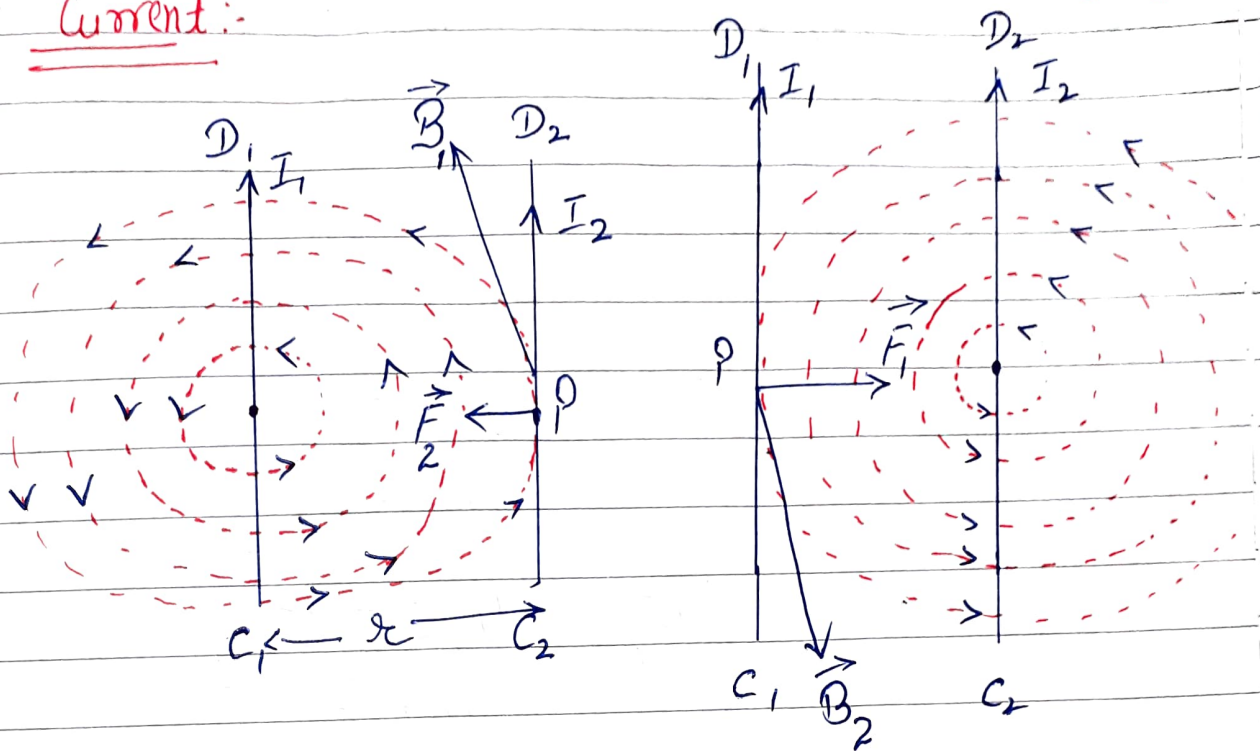 Current:-
D₁ I₁
B⃗₁ D₂
I₂
F⃗₂ P
C₁ r C₂
D₁ I₁
D₂ I₂
P F⃗₁
C₁ B⃗₂ C₂